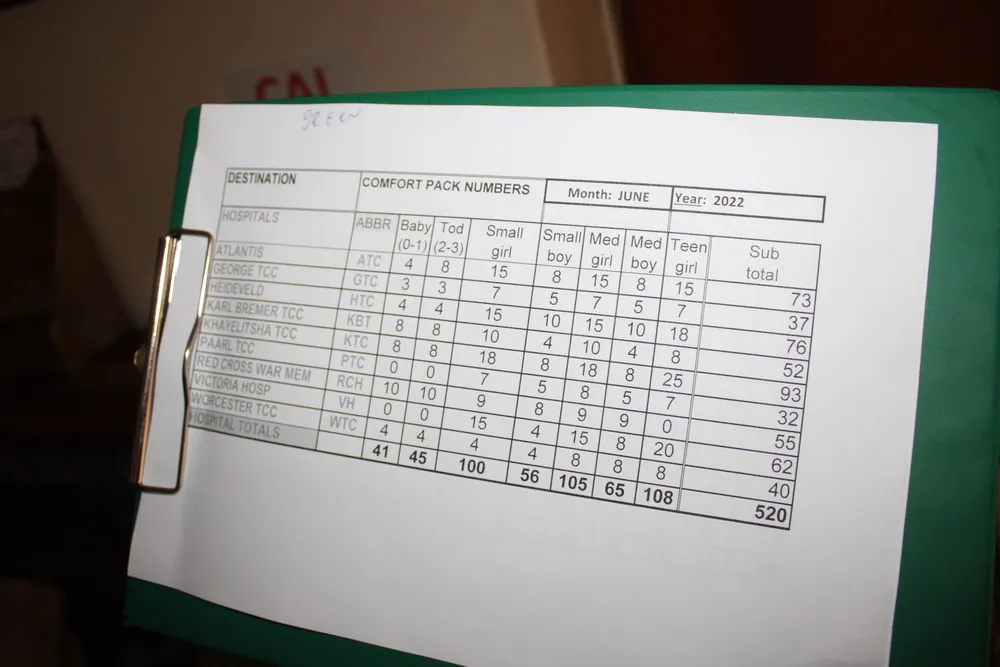 green
DESTINATION COMFORT PACK NUMBERS Month: JUNE Year: 2022
HOSPITALS ABBR Baby (0-1) Tod (2-3) Small girl Small boy Med girl Med boy Teen girl Sub total
ATLANTIS ATC 4 8 15 8 15 8 15 73
GEORGE TCC GTC 3 3 7 5 7 5 7 37
HEIDEVELD HTC 4 4 15 10 15 10 18 76
KARL BREMER TCC KBT 8 8 10 4 10 4 8 52
KHAYELITSHA TCC KTC 8 8 18 8 18 8 25 93
PAARL TCC PTC 0 0 7 5 8 5 7 32
RED CROSS WAR MEM RCH 10 10 9 8 9 9 0 55
VICTORIA HOSP VH 0 0 15 4 15 8 20 62
WORCESTER TCC WTC 4 4 4 4 8 8 8 40
HOSPITAL TOTALS 41 45 100 56 105 65 108 520